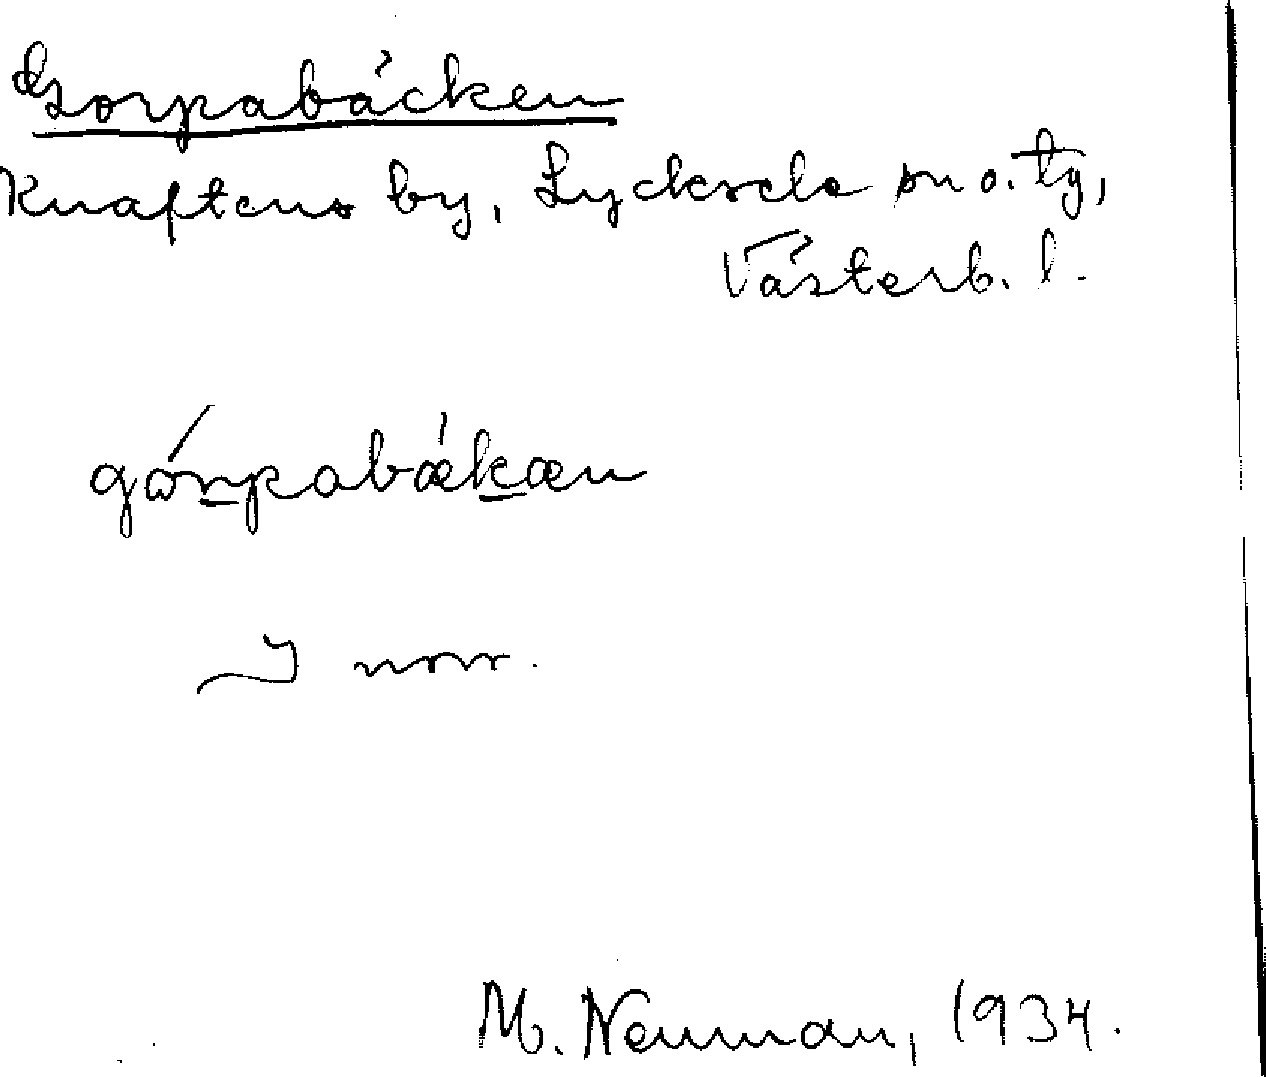 Gorpabäcken
Knaftens by, Lycksele sn o. tg,
Västerb. l.
gårpabækæn
I norr.
M. Neuman, 1934.